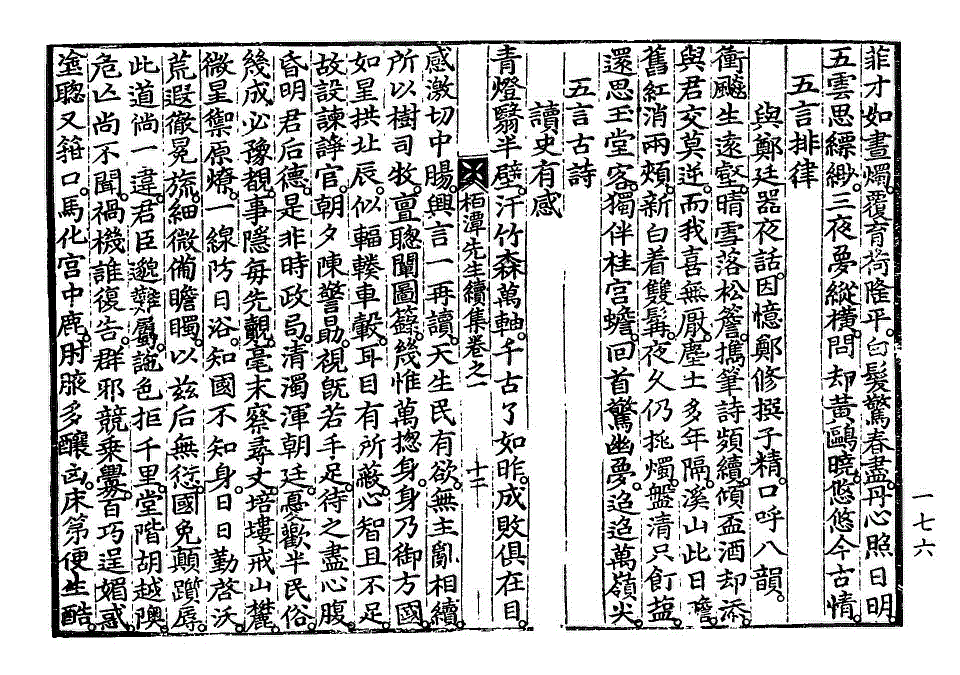 菲才如晝燭覆育荷隆平白髮驚春盡丹心照日明
五雲思縹緲三夜夢縱橫問却黃鷗曉悠悠今古情
五言排律
與鄭廷器夜話因憶鄭修撰子精口呼八韻
衝飈生遠壑晴雪落松簷擕筆詩頻續傾盃酒却添
與君交莫逆而我喜無厭塵土多年隔溪山此日噡
舊紅消兩頰新白着雙髯夜久仍挑燭盤清只飣䀋
還思玉堂客獨伴桂宮蟾回首驚幽夢迢迢萬嶺尖
五言古詩
讀史有感
青燈翳半壁汗竹森萬軸千古了如昨成敗俱在目
栢潭先生續集卷之一 十二
感激切中腸興言一再讀天生民有欲無主亂相續
所以樹司牧亶聰闡圖籙幾惟萬揔身身乃御方國
如星拱北辰似輻輳車轂耳目有所蔽心智且不足
故設諫諍官朝夕陳警勗視旣若手足待之盡心腹
昏明君后德是非時政局清濁渾朝廷憂歡半民俗
幾成必豫覩事隱每先覿毫末察尋丈培塿戒山麓
微星禦原燎一線防日浴知國不知身日日勤啓沃
荒遐徹冕旒細微僃瞻矚以玆后無衍國免顚躓辱
此道徜一違君臣邈難屬訑色拒千里堂階胡越隩
危亡尚不聞禍機誰復告群邪競乘釁百巧逞媚惑
塗聰又箝口馬化宮中鹿肘腋多釀凶床第便生酷
一七六